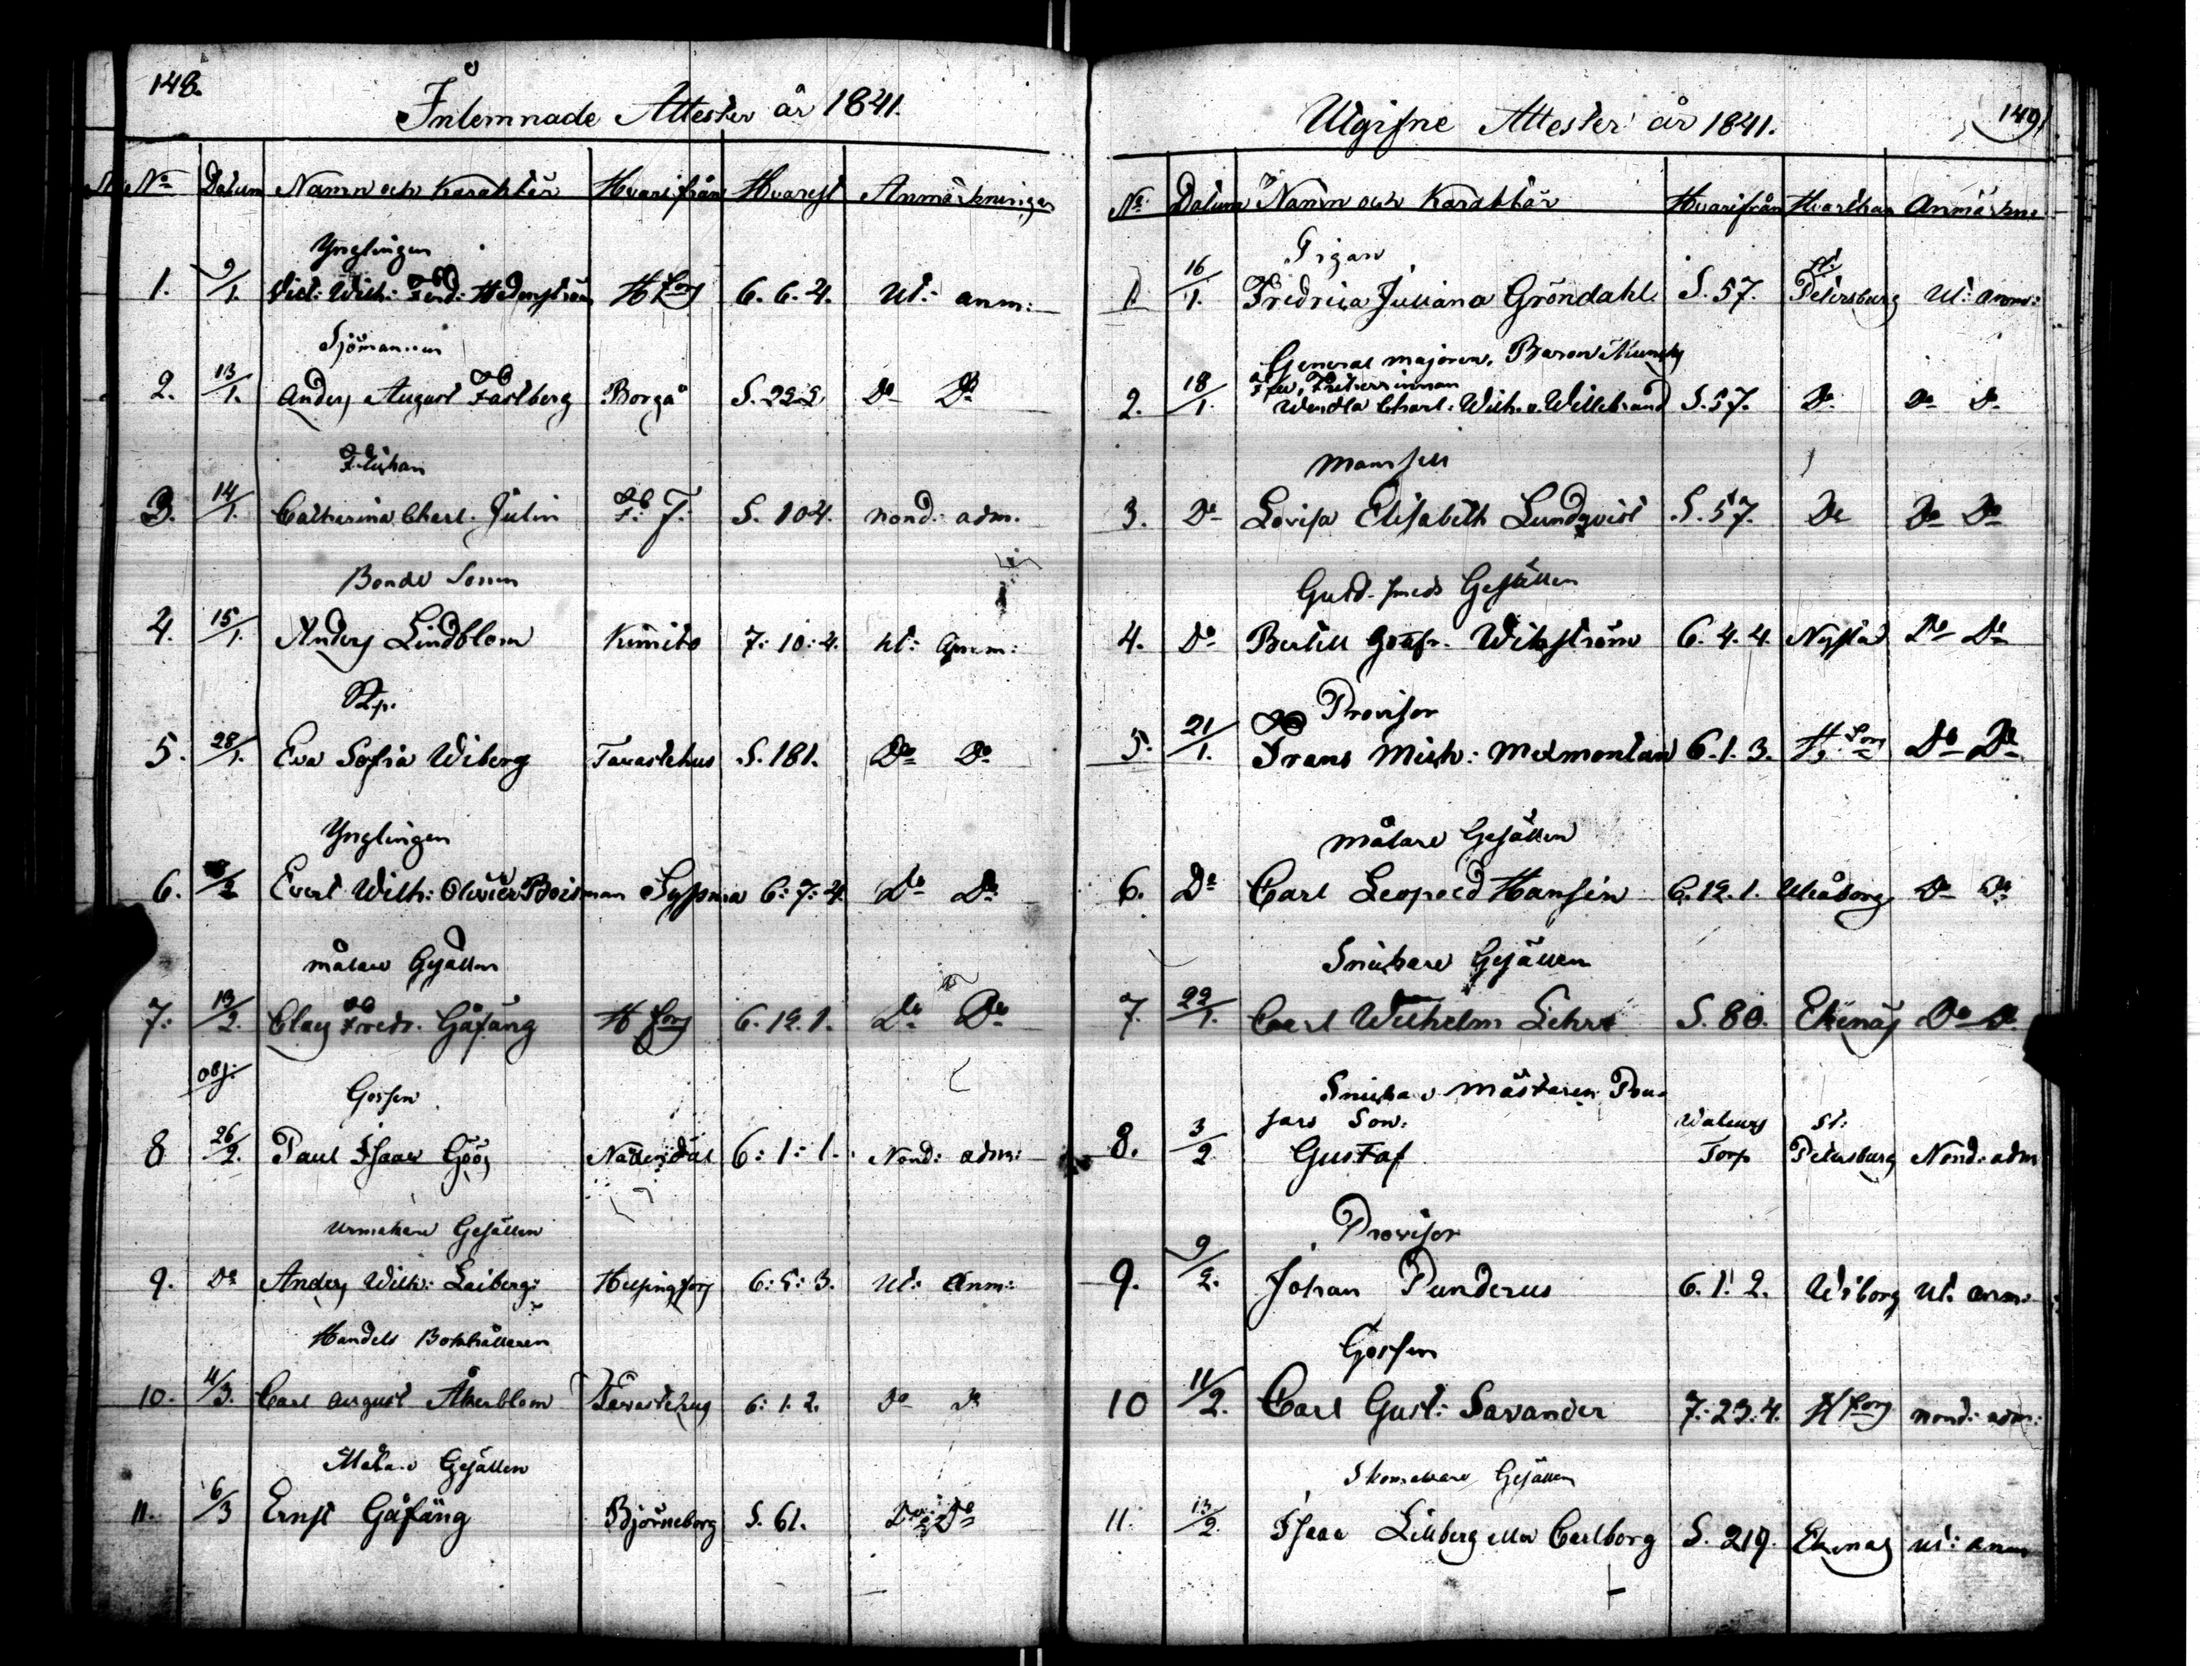 148.
Inlemnade Attester år 1841.
No Datum Namn och Karakter Hvarifrån Hvarest Anmärkningar
Ynglingen
1. 9/1. Vict: Wilh: Ferd: Hedenström Hfors 6. 6. 4. ut: anm:
Sjömannen
2. 13/1. Anders August Fastberg Borgå S. 222 Do Do
Flickan
3. 14/1. Catharina Charl. Julin F: F: S. 104. nond: adm.
Bonde Sonen
4. 15/1. Anders Lindblom Kimito 7: 10: 4. ut: anm:
Pp.
5. 28/1. Eva Sofia Wiberg Tavastehus S. 181. Do Do
Ynglingen
6. /2 Evert Wilh: Olivier Boisman Sysmä 6: 7: 4. Do Do
målare Gesällen
7: 13/2. Clas Fredr. Gåfäng Hfors 6. 12. 1. Do Do
obs:
Gossen
8 26/2. Paul Isaac Göös Nådendal 6: 1: 1. Nond: adm:
Urmakare Gesällen
9. Do Anders Wilh: Laiberg: Helsingfors 6: 5: 3. Ut: Anm:
Handels Bokhållaren
10. 4/3. Carl August Åkerblom Tavastehus 6: 1. 2. Do Do
Målare Gesällen
11. 6/3 Ernst Gåfäng Björneborg S. 61. Do Do
149
Utgifne Attester år 1841.
No Datum Namn och Karakter Hvarifrån Hvarthan Anmärkn.
Pigan
1 16/1. Fredrica Juliana Gröndahl S. 57. St: Petersburg ut: anm:
General majoren, Baron Muncks
Fru, Friherrinnan
2. 18/1. Wendla Charl: Wilh. v. Willebrand S. 57. Do Do Do
Mamsell
3. Do Lovisa Elisabeth Lundqvist S. 57. Do Do Do
Guld-smeds Gesällen
4. Do Bertill Gustf. Wikström 6. 4. 4. Nystad Do Do
Provisor
5. 21/1. Frans Mich: Malmontan 6. 1. 3. H:fors Do Do
målare Gesällen
6. Do Carl Leopold Hansén 6. 12. 1. Uleåborg Do Do
Snickare Gesällen
7. 22/1. Carl Wilhelm Lehr S. 80. Ekenäs Do Do
Snickare Mästaren
Son. St:
8. 3/2 Gustaf Torp Petersburg Nond: adm
Provisor
9. 9/2. Johan Punderus 6. 1. 2. Wiborg ut. anm:
Gossen
10 11/2. Carl Gust: Savander 7: 23. 4. Hfors nond: adm:
Skomakare Gesällen
11. 13/2. Isaac Lillberg eller Carlborg S. 219. Ekenäs ut: anm